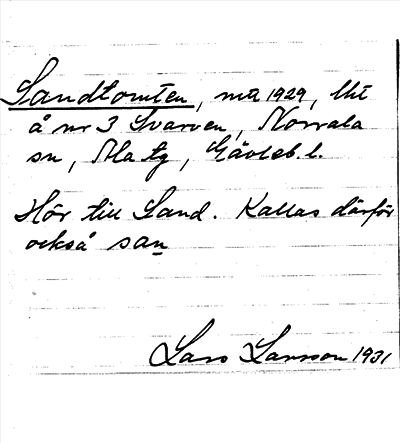 Sandtomten, må 1929, Utt
å nr 3 Svarven, Norrala
sn, Ala tg, Gävleb. l.
Hör till Sand. Kallas därför
också san
Lars Larsson 1931